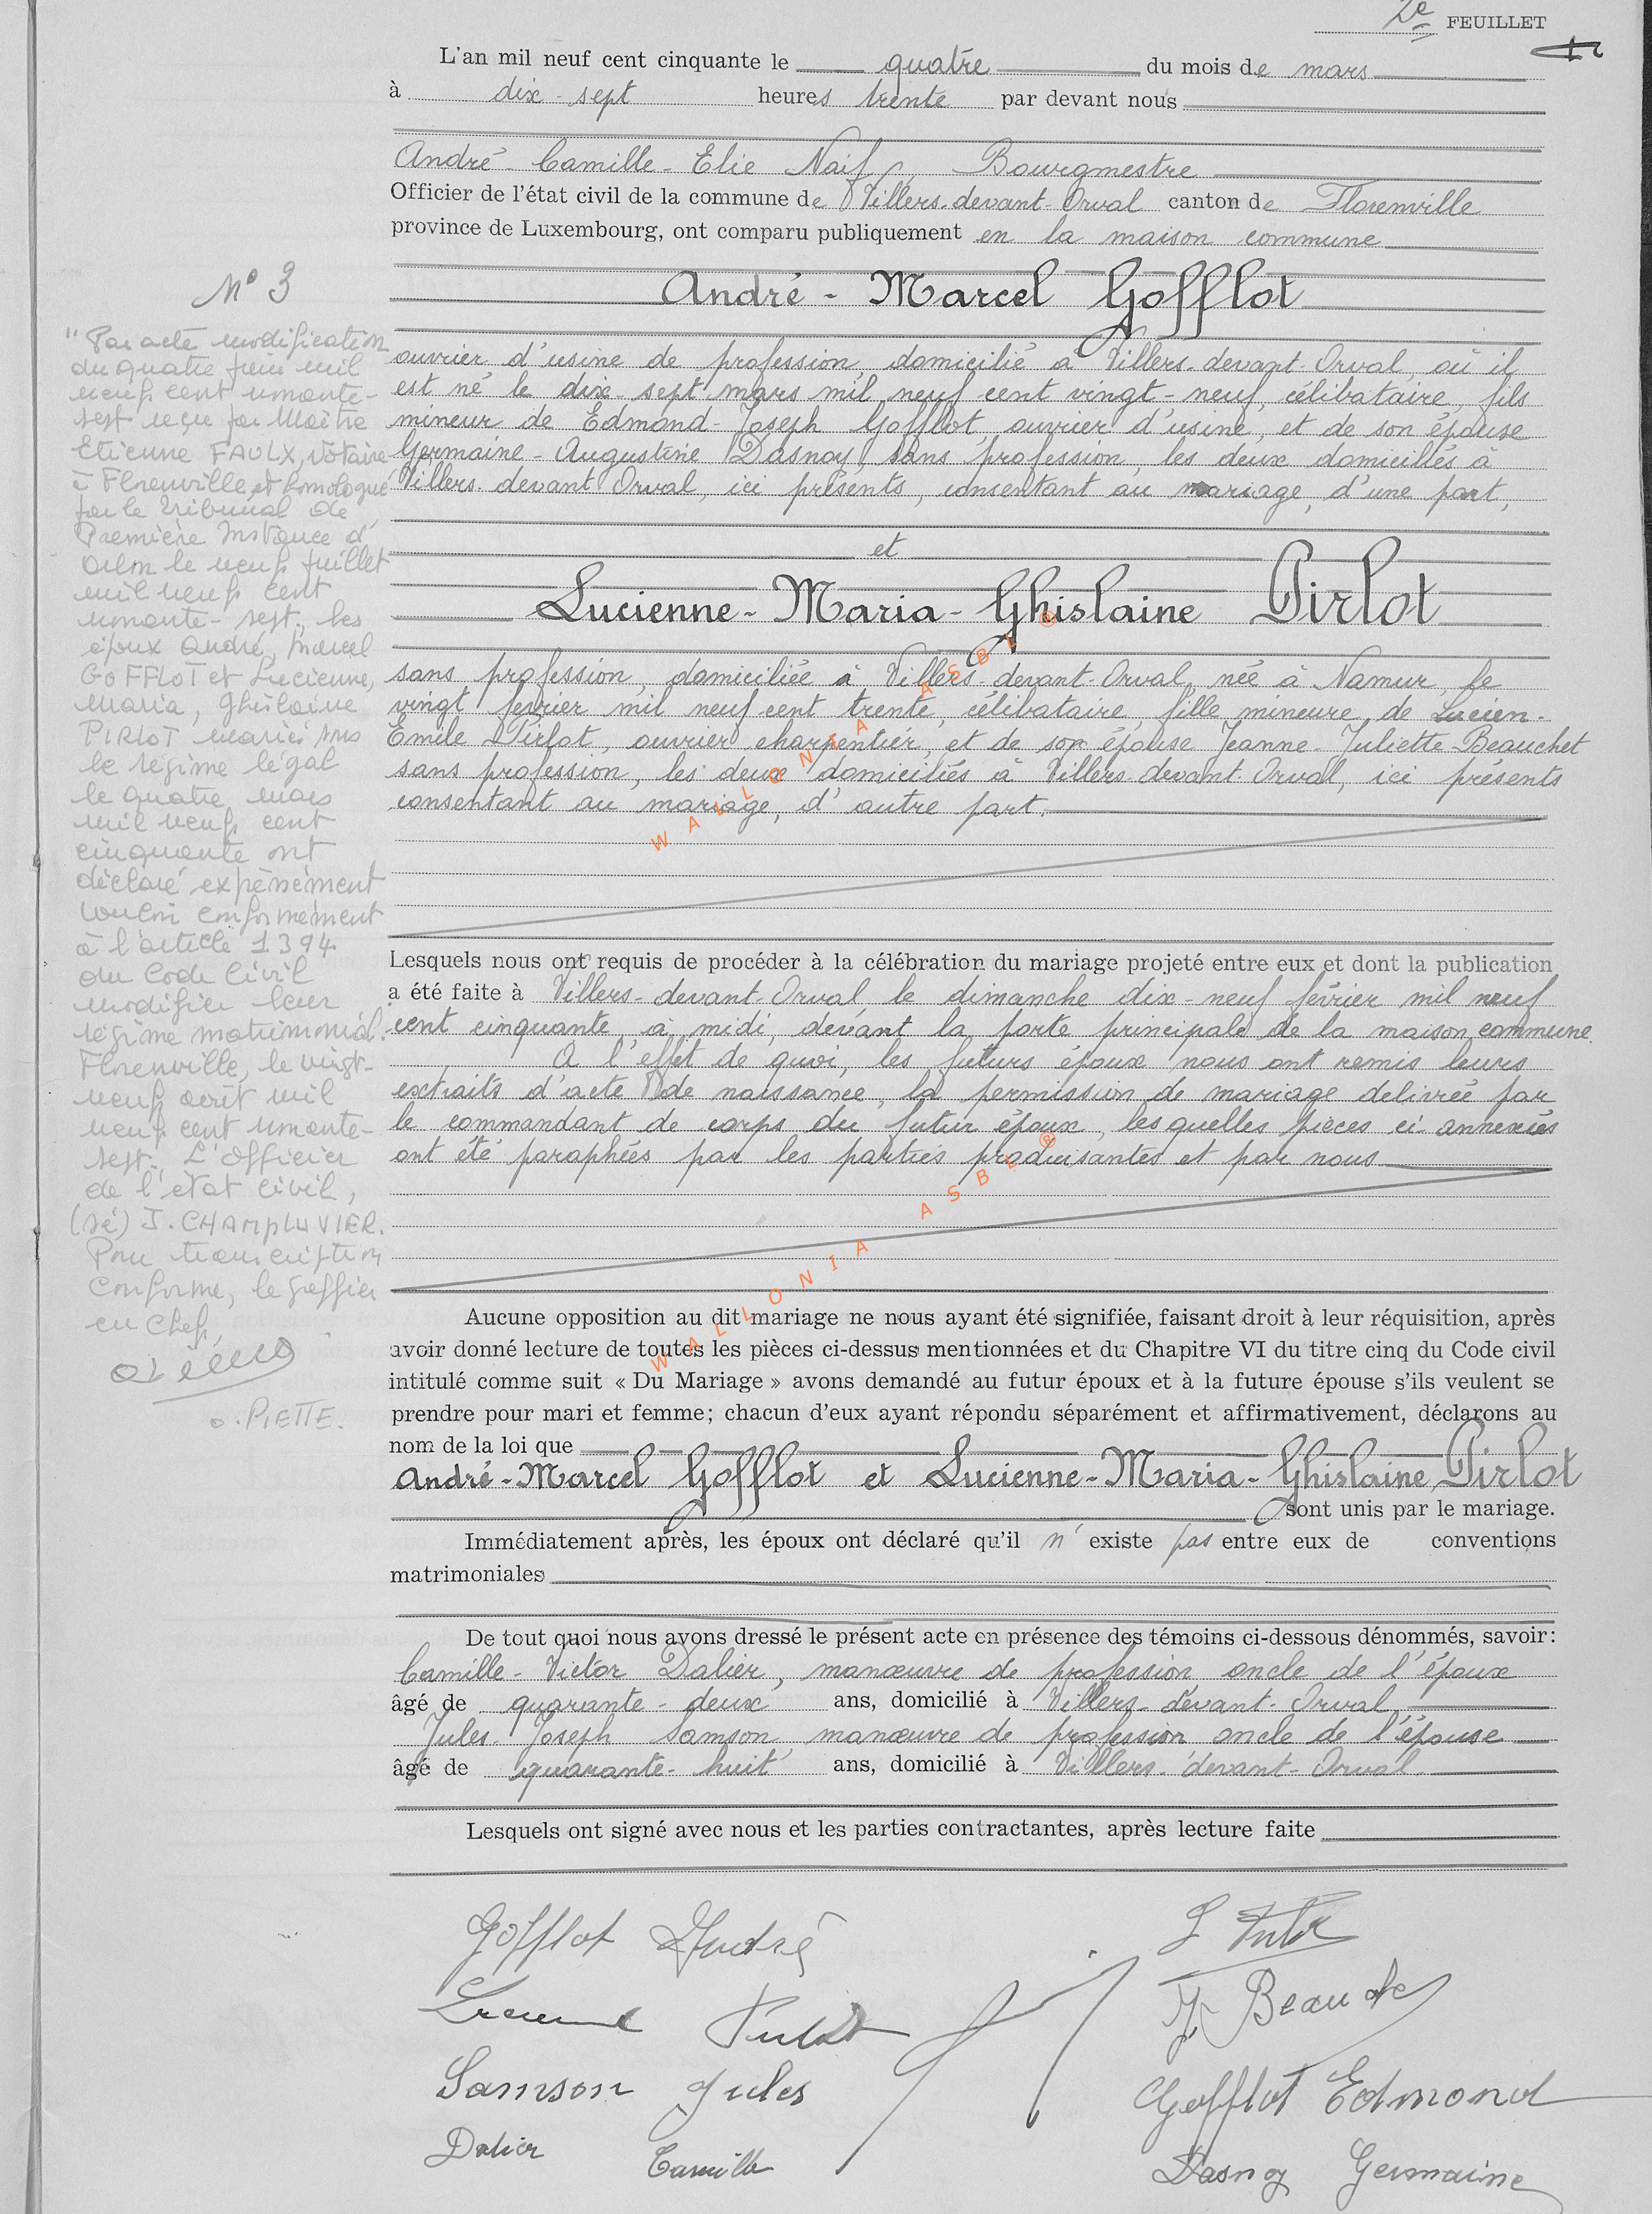 2e FEUILLET
L'an mil neuf cent cinquante le quatre du mois de mars
à dix-sept heures trente par devant nous
André-Camille-Elie Naif, Bourgmestre
Officier de l'état civil de la commune de Villers-devant-Orval canton de Florenville
province de Luxembourg, ont comparu publiquement en la maison commune
André-Marcel Gofflot
ouvrier d'usine de profession, domicilié à Villers-devant-Orval, où il
est né le dix-sept mars mil neuf cent vingt-neuf, célibataire, fils
mineur de Edmand-Joseph Gofflot, ouvrier d'usine, et de son épouse
Germaine-Augustine Dasnoy, sans profession, les deux domiciliés à
Villers-devant Orval, ici présents, consentant au mariage, d'une part,
et
Lucienne-Maria-Ghislaine Pirlot
sans profession, domiciliée à Villers-devant-Orval, née à Namur, le
vingt février mil neuf cent trente, célibataire, fille mineure de Lucien-
Emile Pirlot, ouvrier charpentier, et de son épouse Jeanne-Juliette Beauchet
sans profession, les deux domiciliés à Villers-devant-Orval, ici présents
consentant au mariage, d'autre part.
Lesquels nous ont requis de procéder à la célébration du mariage projeté entre eux et dont la publication
a été faite à Villers-devant-Orval le dimanche dix-neuf février mil neuf
cent cinquante, à midi, devant la porte principale de la maison commune.
A l'effet de quoi, les futurs époux nous ont remis leurs
extraits d'acte de naissance, la permission de mariage delivrée par
le commandant de corps du futur époux, les quelles pièces ci-annexées
ont été paraphées par les parties produisantes et par nous
Aucune opposition au dit mariage ne nous ayant été signifiée, faisant droit à leur réquisition, après
avoir donné lecture de toutes les pièces ci-dessus mentionnées et du Chapitre VI du titre cinq du Code civil
intitulé comme suit « Du Mariage » avons demandé au futur époux et à la future épouse s'ils veulent se
prendre pour mari et femme; chacun d'eux ayant répondu séparément et affirmativement, déclarons au
nom de la loi que
André-Marcel Gofflot et Lucienne-Maria-Ghislaine Pirlot
sont unis par le mariage.
Immédiatement après, les époux ont déclaré qu'il n' existe pas entre eux de conventions
matrimoniales
De tout quoi nous avons dressé le présent acte en présence des témoins ci-dessous dénommés, savoir:
Camille-Victor Dalier, manœuvre de profession oncle de l'époux
âgé de quarante-deux ans, domicilié à Villers-devant-Orval
Jules-Joseph Samson manœuvre de profession oncle de l'épouse
âgé de quarante-huit ans, domicilié à Villers-devant-Orval.
Lesquels ont signé avec nous et les parties contractantes, après lecture faite
Gofflot André
Lucienne Pirlot
J. Beauchet
Samson Jules
Gofflot Edmond
Dalier Camille
Dasnoy Germaine
N° 3
"Par acte modification
du quatre juin mil
neuf cent nonante-
sept reçu par Maître
Etienne FAULX, Notaire
à Florenville et homologué
par le Tribunal de
Première Instance d'
Arlon le neuf juillet
mil neuf cent
nonante-sept. les
époux André, Marcel
GOFFLOT et Lucienne,
Maria, Ghislaine
PIRLOT mariés sous
le régime légal
le quatre mars
mil neuf cent
cinquante ont
déclaré expressément
vouloir conformément
à l'article 1394
du Code Civil
modifier leur
régime matrimonial.
Florenville, le vingt-
neuf août mil
neuf cent nonante-
sept. L'Officier
de l'état civil,
(sé) J. CHAMPLUVIER.
Pour transcription
conforme, le greffier
en Chef,
O. PIETTE.
WALLONIA ASBL ®
WALLONIA ASBL ®